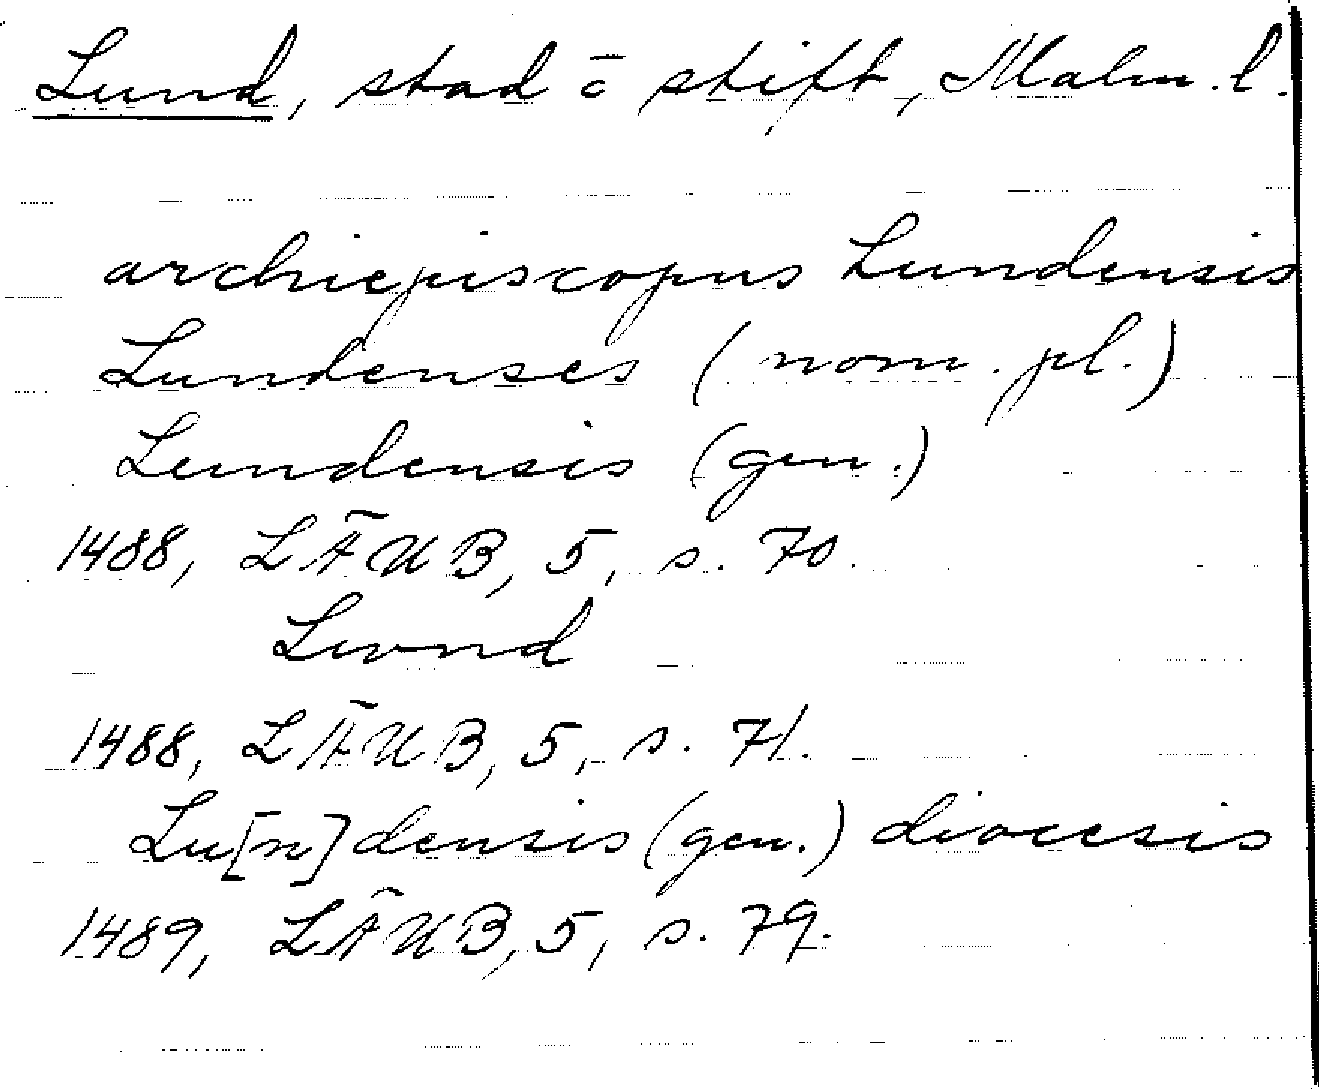 Lund, stad o stift, Malm. l.
archiepiscopus Lundensis
Lundenses (nom. pl.)
Lundensis (gen.)
1488, LÄUB, 5, s. 70.
Lwnd
1488, LÄUB, 5, s. 71.
Lu[n]densis (gen.) diocesis
1489, LÄUB, 5, s. 79.